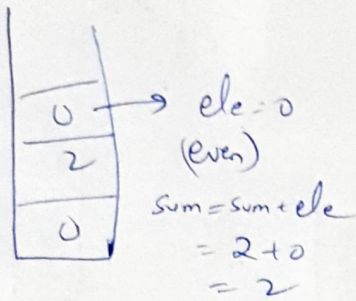 0 → ele = 0
2 (even)
0 sum = sum + ele
= 2 + 0
= 2